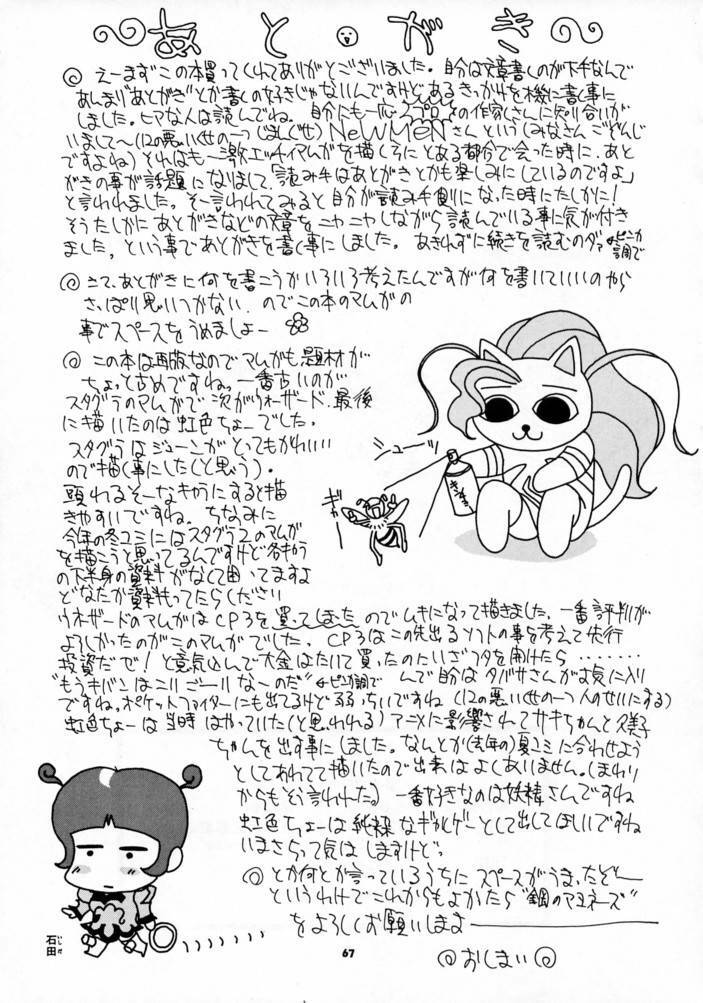 あと・がき
◎ えーまずこの本買ってくれてありがとございました。自分は文章書くのが下手なんで
あんまり"あとがき"とか書くの好きじゃないんですけどあるきっかけを機に書く事に
しました。ヒマな人は読んでね。自分にも一応プロの作家さんに知り合いが
いまして〜(12の悪いくせの一つじまんぐせ)NeWMENさんという(みなさんごぞんじ
ですよね)それはも一激エッチィマムガを描く
とある都合で会った時に、あと
がきの事が話題になりまして、「読み手はあとがきとかも楽しみにしているのですよ」
と言われました。そー言われてみると自分が読み手側になった時にたしかに!
そうたしかにあとがきなどの文章をニヤニヤしながら読んでいる事に気が付き
ました、という事であとがきを書く事にしました。あきれずに続きを読むのダァ
口調で
◎ さて、あとがきに何を書こうかいろいろ考えたんですが何を書いていいのやら
さっぱり思いつかない、のでこの本のマムガの
事でスペースをうめましょー
◎ この本は再販なのでマムガも題材が
ちょっと古めですね。一番古いのが
スタグラのマムガで次がウォーザード、最後
に描いたのは虹色ちょーでした。
スタグラはジューンがとってもかわいい
ので描く事にした(と思う)。
頭わるそーなキャラにすると描
きやすいですね。ちなみに
今年の冬コミにはスタグラ2のマムガ
を描こうと思ってるんですけど各キャラ
の下半身の資料がなくて困ってますよ
どなたか資料もってたらください
ウォーザードのマムガはCP3を買ってしまったのでムキになって描きました、一番評判が
よろしかったのがこのマムガでした。CP3はこの先出るソフトの事を考えて先行
投資だで!と意気込んで大金はたいて買ったのにいざフタを開けたら・・・・・・・・
"もうキバンはニルゴールなーのだ" 口調で んで自分はタバサさんがお気に入り
ですね、ポケットファイターにも出てるけど弱っちいですね(12の悪いくせの一つ人のせいにする)
虹色ちょーは当時はやっていた(と思われる)アニメに影響されてサキちゃんと久美子
ちゃんを出す事にしました。なんとか(去年の)夏コミに合わせよう
としてあわてて描いたので出来はよくありません。(まわり
からもそう言われた) 一番好きなのは妖精さんですね
虹色ちょーは純粋なギャルゲーとして出してほしいですね
いまさらって気はしますけどっ
◎ とか何とか言っているうちにスペースがうまったぞー
というわけでこれからもよかったら"鋼のマヨネーズ"
をよろしくお願いしまよー
◎おしまい◎
シューッ
ギャー
石田
67